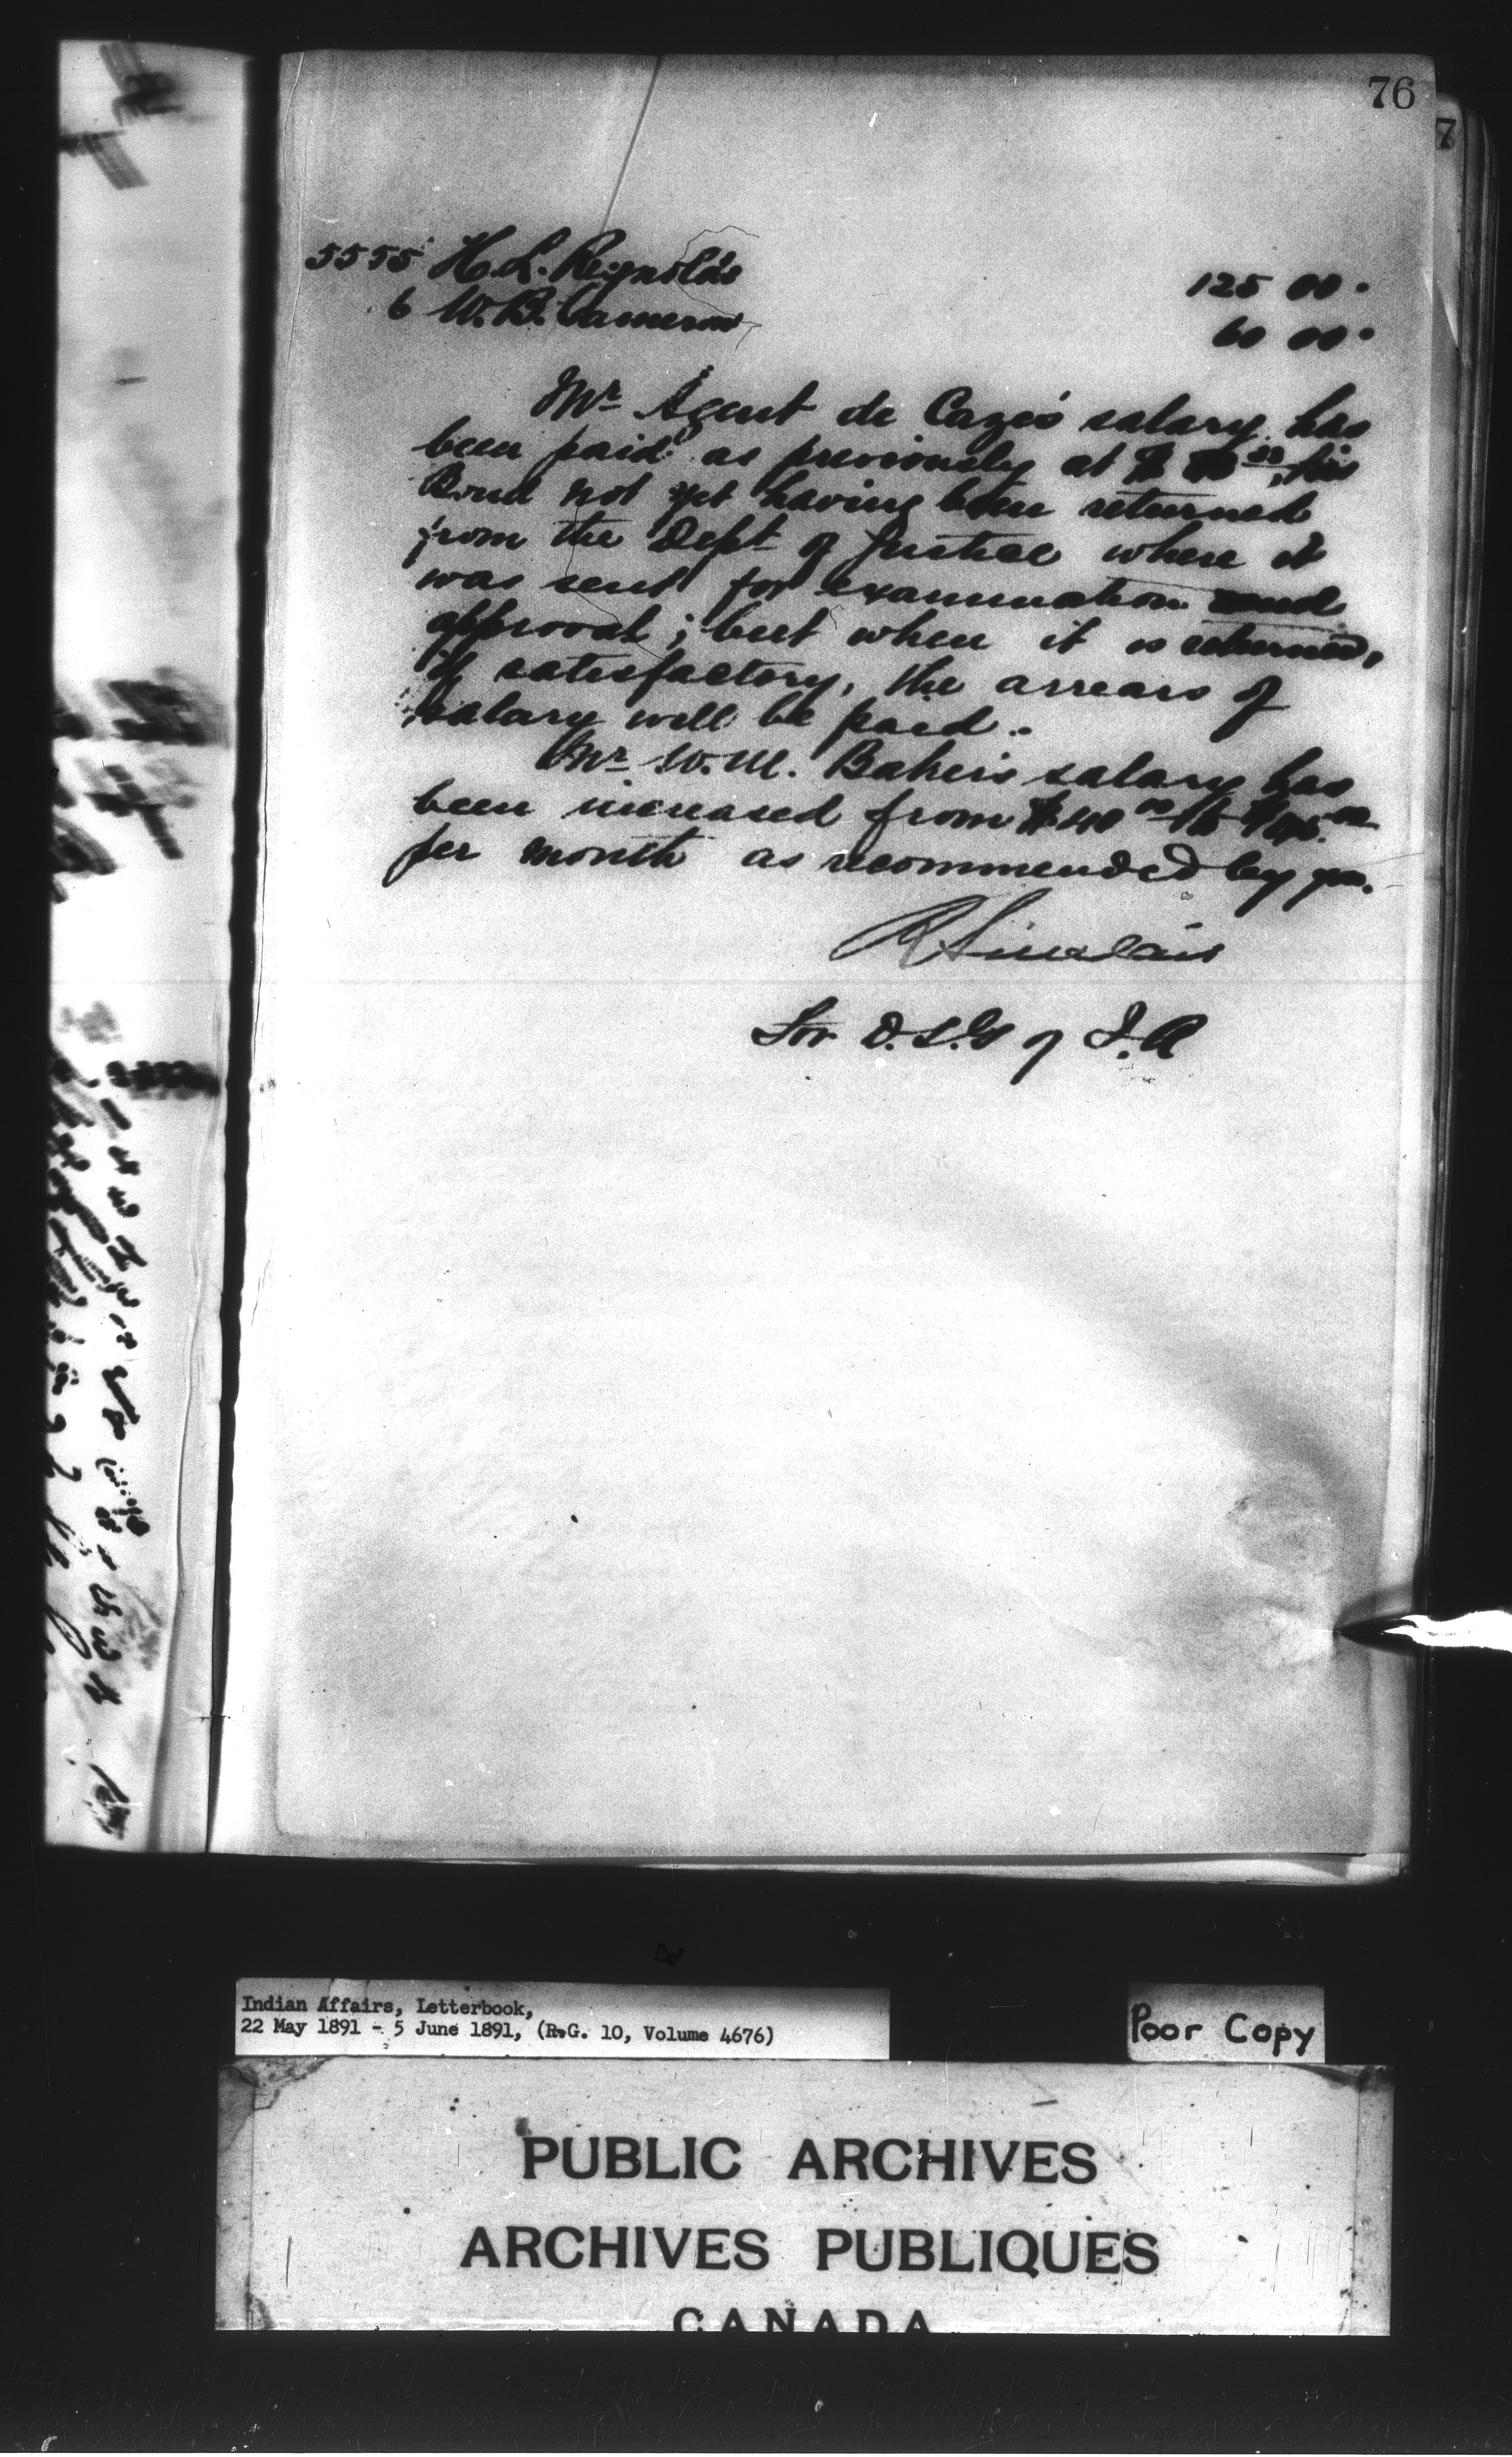 76
7
5555 H. L. Reynolds 125 00.
6 W. B. Cameron 60 00.
Mr Agent de Cazes salary has
been paid as previously at $ his
Bond not yet having been returned
from the Dept of Justice where it
was sent for examination and
approval; but when it is returned,
if satisfactory, the arrears of
salary will be paid.
Mr. W. M. Baker's salary has
been increased from $40 00 to $45 00
per month as recommended by you.
R Sinclair
For D.S.G of I.A
Indian Affairs, Letterbook,
22 May 1891 - 5 June 1891, (R.G. 10, Volume 4676)
Poor Copy
PUBLIC ARCHIVES
ARCHIVES PUBLIQUES
CANADA